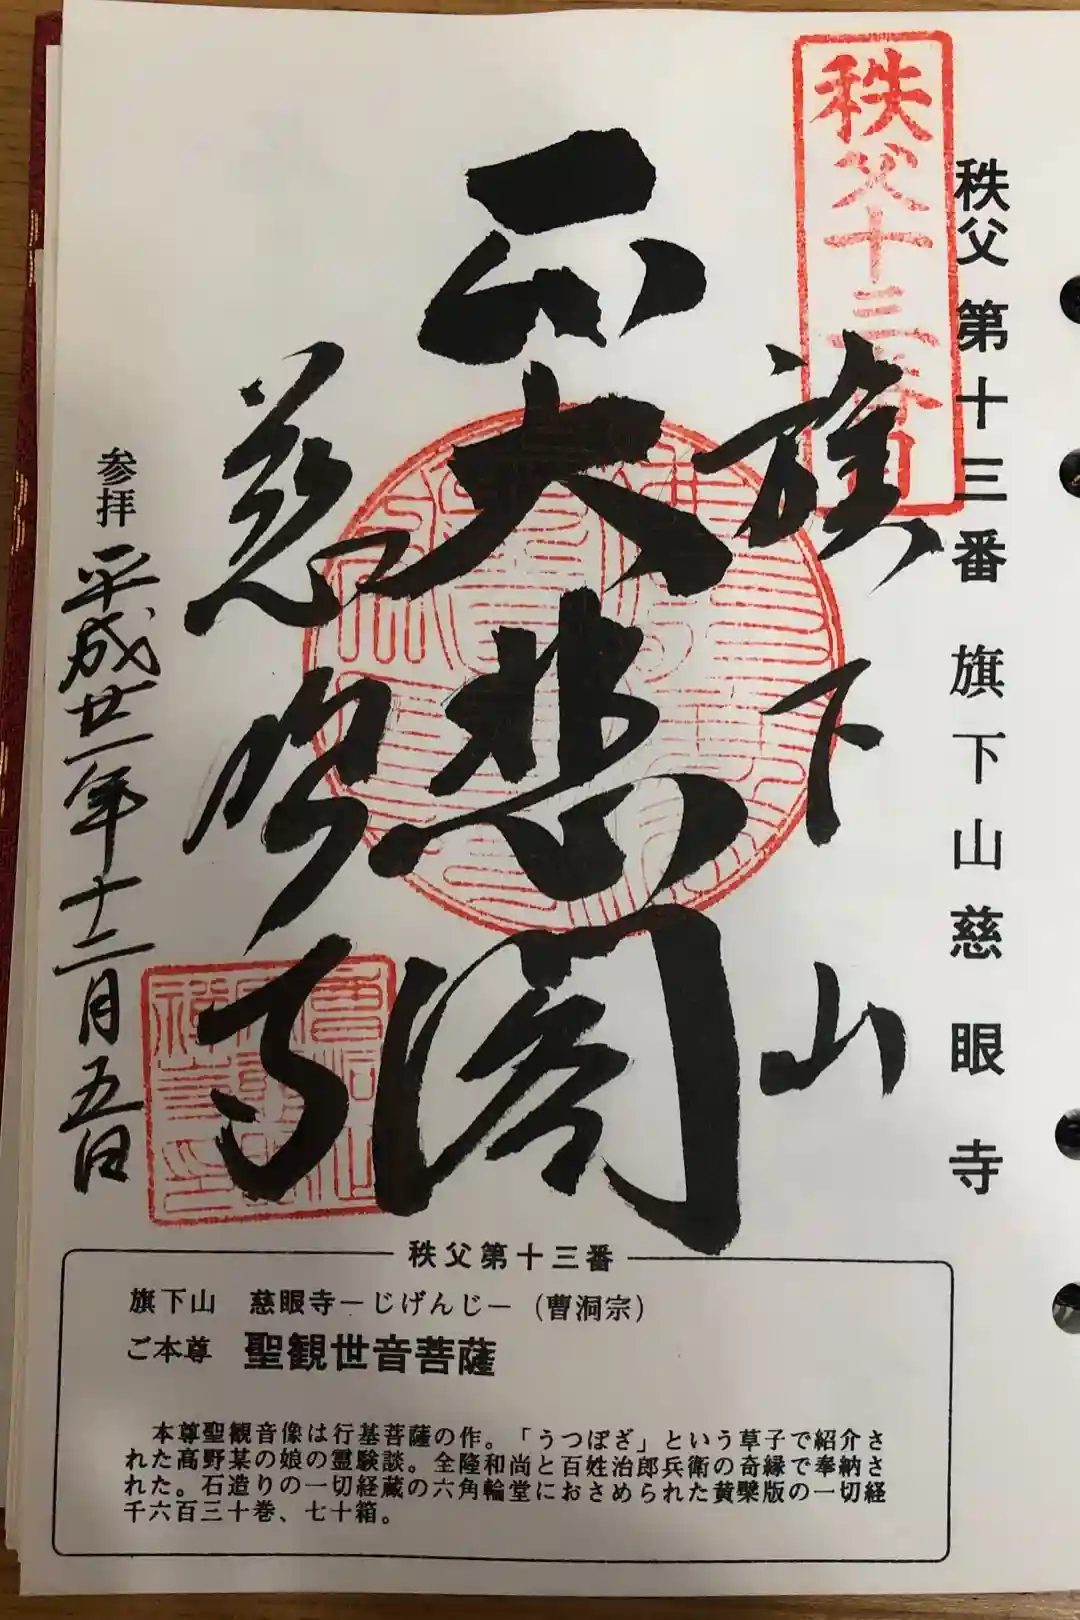 秩父第十三番 旗下山慈眼寺
秩父十三番
旗下山
正大悲閣
慈眼寺
参拝 平成廿一年十二月五日
秩父第十三番
旗下山 慈眼寺－じげんじ－（曹洞宗）
ご本尊 聖観世音菩薩
本尊聖観音像は行基菩薩の作。「うつぼざ」という草子で紹介さ
れた高野某の娘の霊験談。全隆和尚と百姓治郎兵衛の奇縁で奉納さ
れた。石造りの一切経蔵の六角輪堂におさめられた黄檗版の一切経
千六百三十巻、七十箱。